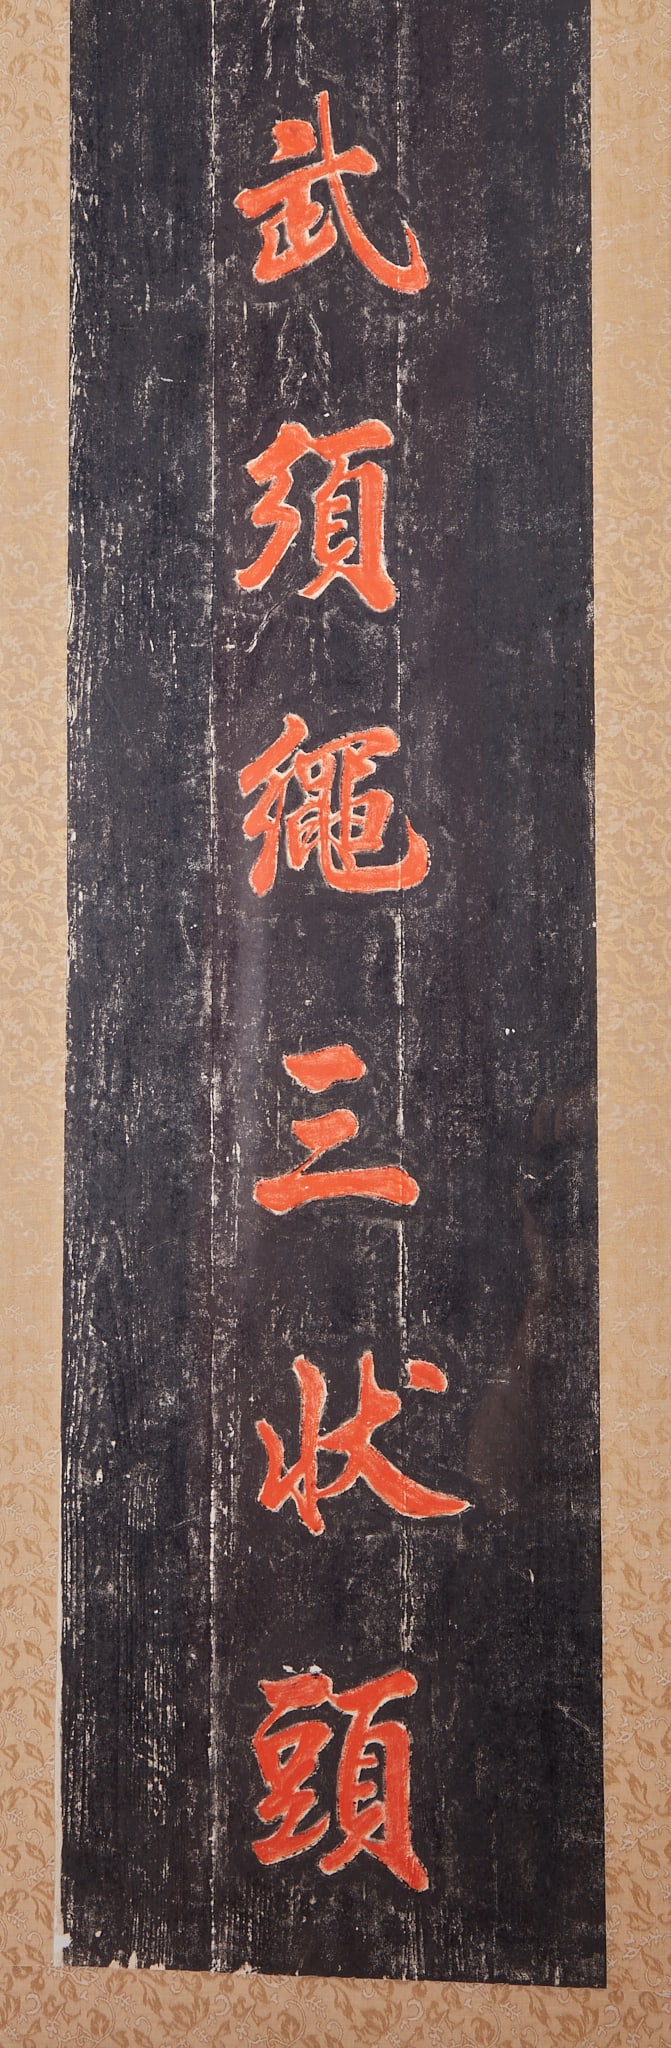 武須繩三状頭